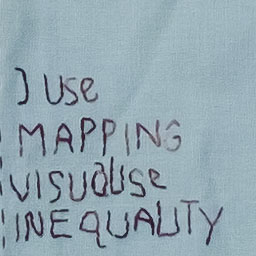 ) USe
MAPPING
VISUALISe
INEQUALITY